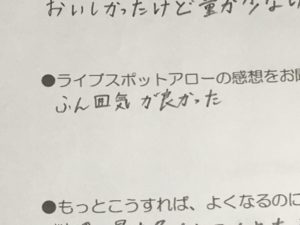 おいしかったけど量が少ない
●ライブスポットアローの感想をお聞
ふん囲気が良かった
●もっとこうすれば、よくなるのに